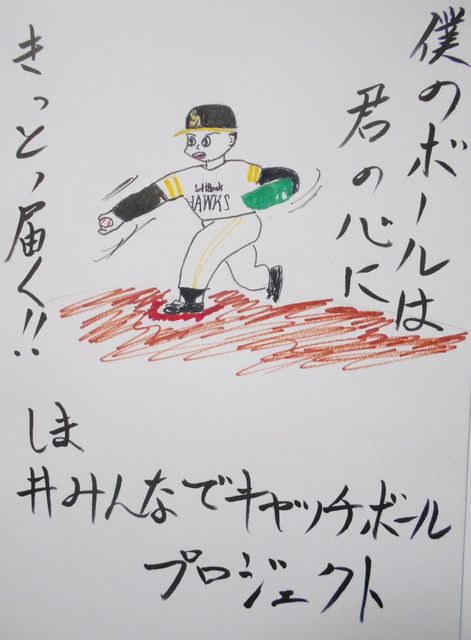 僕のボールは
君の心に
きっと、届く!!
SoftBank
HAWKS
しま
#みんなでキャッチボール
プロジェクト